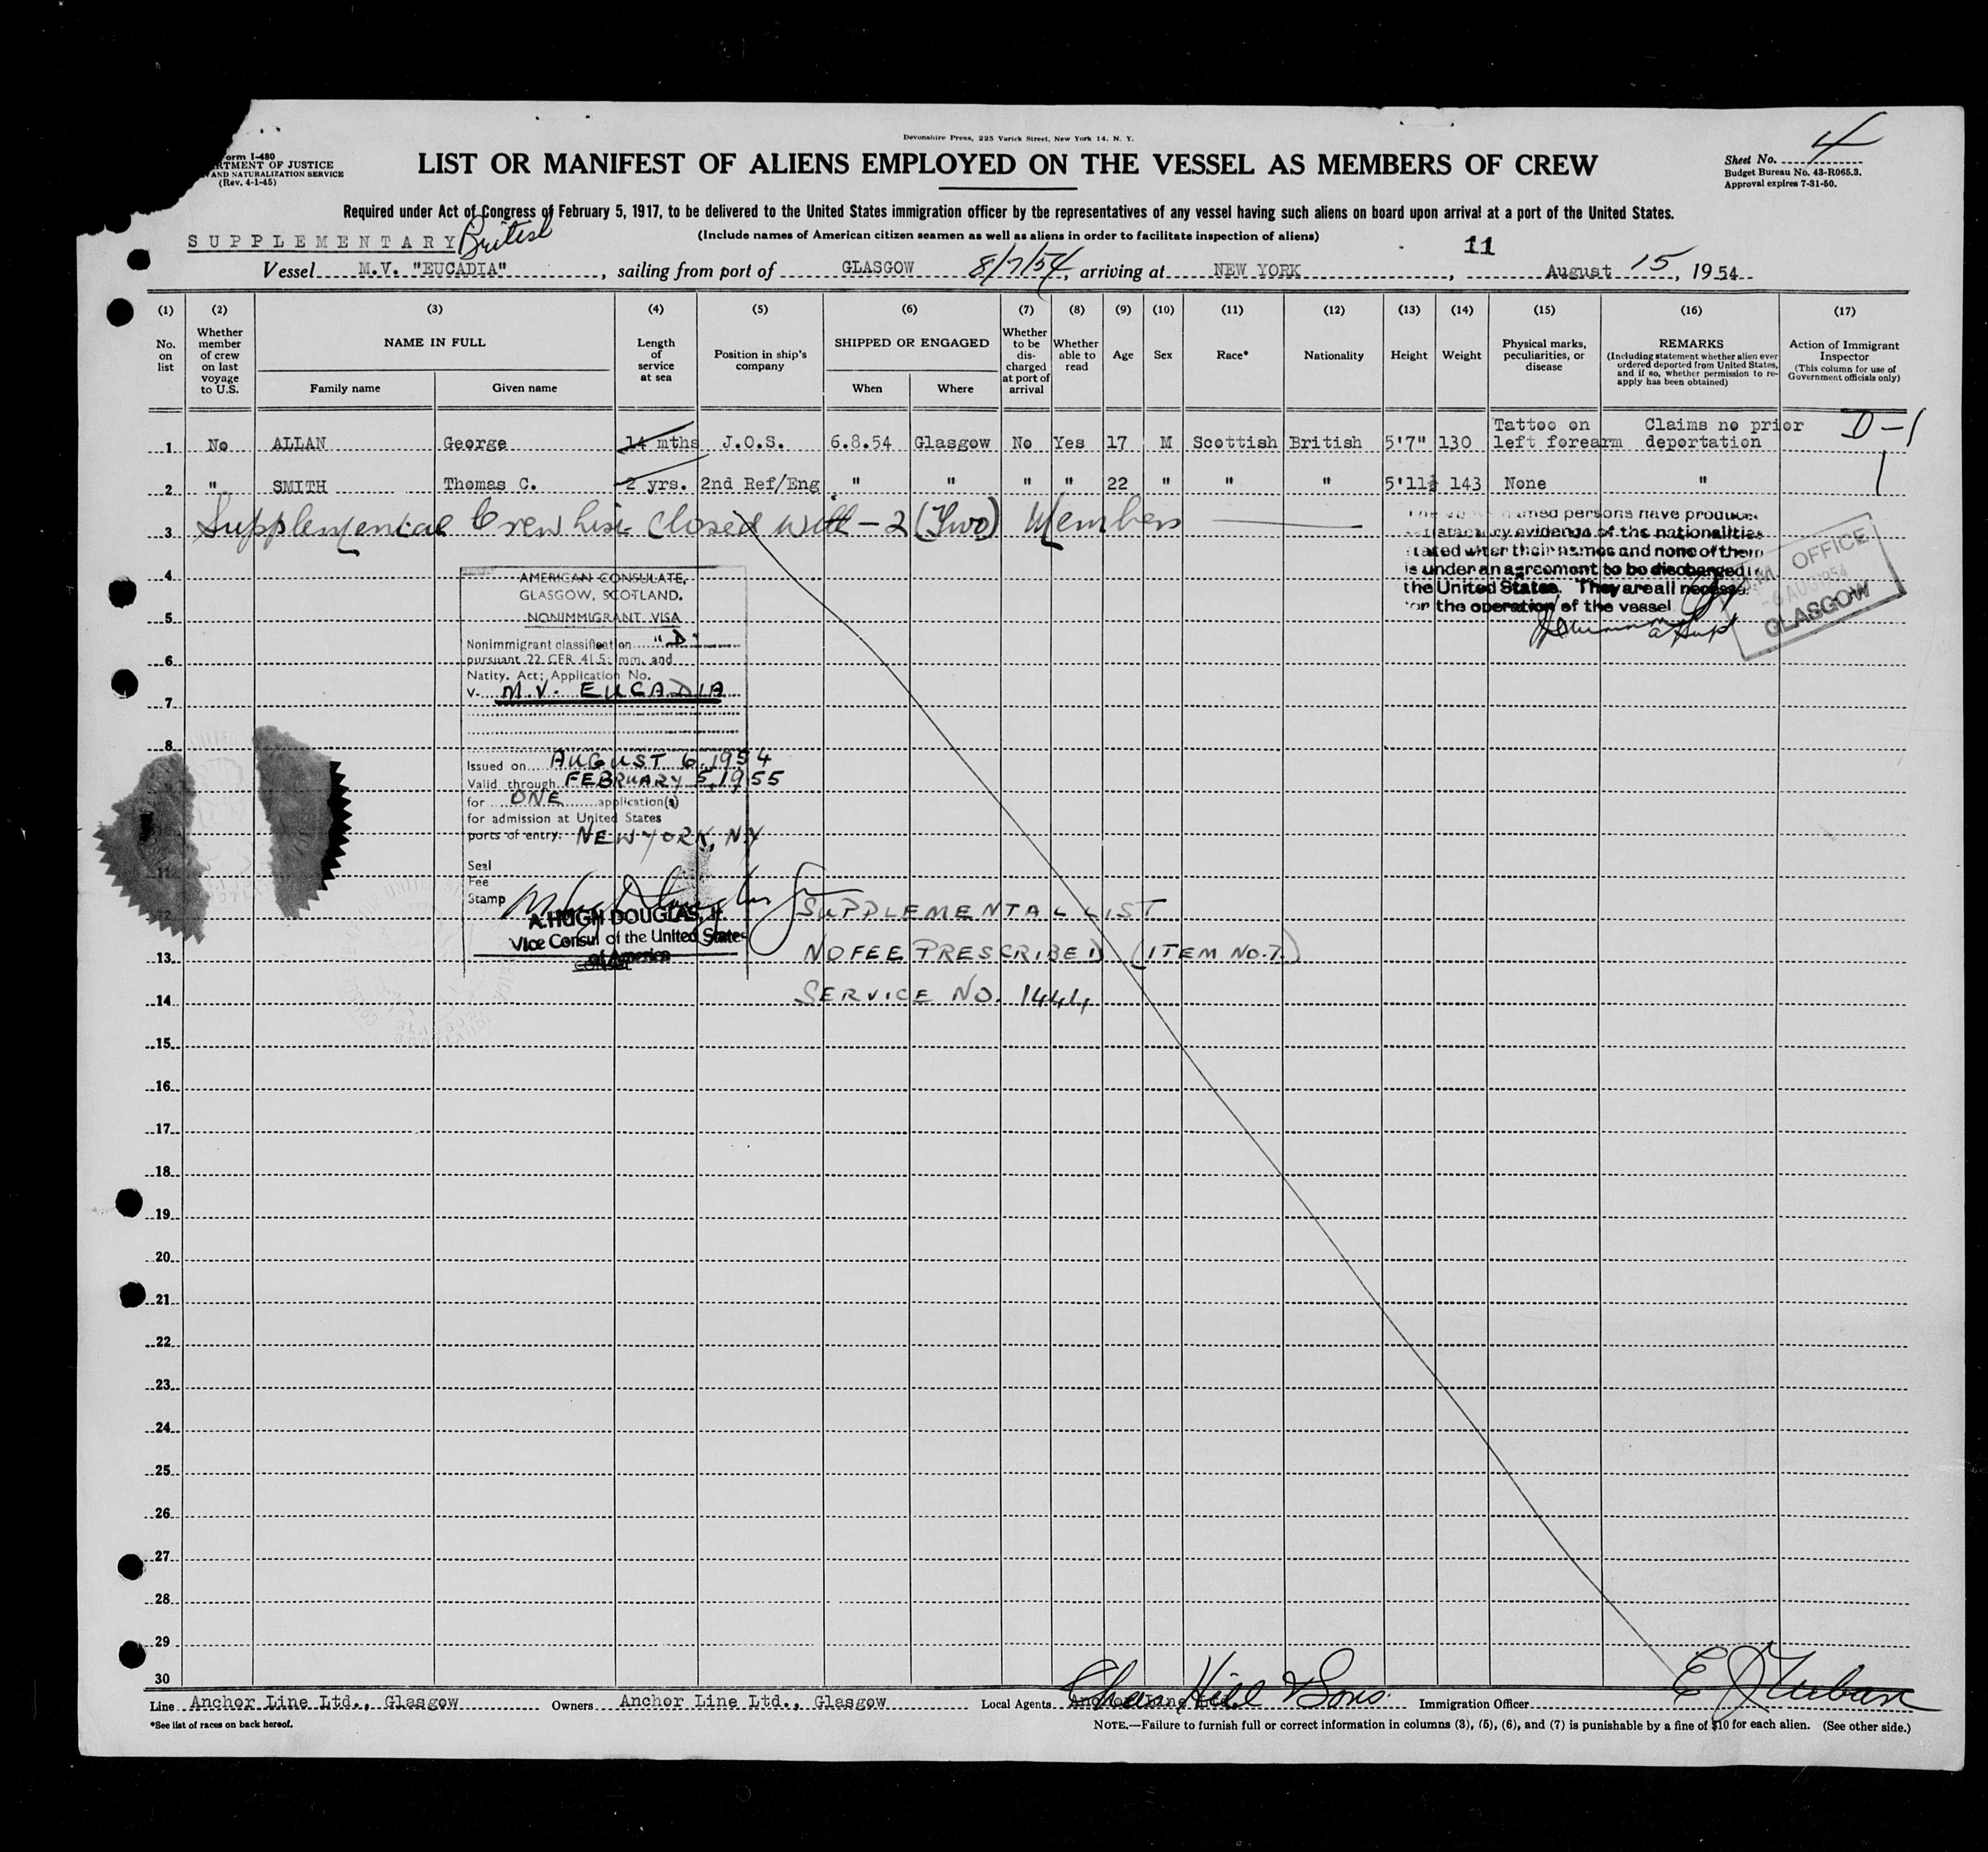 Devonshire Press, 225 Varick Street, New York 14, N. Y.
4
Form I-480
DEPARTMENT OF JUSTICE
AND NATURALIZATION SERVICE
(Rev. 4-1-45)
LIST OR MANIFEST OF ALIENS EMPLOYED ON THE VESSEL AS MEMBERS OF CREW
Sheet No.
Budget Bureau No. 43-R065.3.
Approval expires 7-31-50.
Required under Act of Congress of February 5, 1917, to be delivered to the United States immigration officer by the representatives of any vessel having such aliens on board upon arrival at a port of the United States.
SUPPLEMENTARY British
(Include names of American citizen seamen as well as aliens in order to facilitate inspection of aliens)
11
Vessel M.V. "EUCADIA", sailing from port of GLASGOW 8/7/54, arriving at NEW YORK, August 15, 1954
(1) (2) (3) (4) (5) (6) (7) (8) (9) (10) (11) (12) (13) (14) (15) (16) (17)
No. on list
Whether member of crew on last voyage to U.S.
NAME IN FULL
Family name
Given name
Length of service at sea
Position in ship's company
SHIPPED OR ENGAGED
When
Where
Whether to be discharged at port of arrival
Whether able to read
Age
Sex
Race*
Nationality
Height
Weight
Physical marks, peculiarities, or disease
REMARKS
(Including statement whether alien ever ordered deported from United States, and if so, whether permission to re-apply has been obtained)
Action of Immigrant Inspector
(This column for use of Government officials only)
1 No ALLAN George 14 mths J.O.S. 6.8.54 Glasgow No Yes 17 M Scottish British 5'7" 130 Tattoo on left forearm Claims no prior deportation D-1
2 " SMITH Thomas C. 2 yrs. 2nd Ref/Eng " " " " 22 " " " 5'11½ 143 None " 1
3 Supplemental Crew List closed with - 2 (Two) Members
named persons have produced
satisfactory evidence of the nationalities
stated after their names and none of them
is under an agreement to be discharged in
the United States. They are all necessary
for the operation of the vessel
M.M. OFFICE
6 AUG 1954
GLASGOW
AMERICAN CONSULATE,
GLASGOW, SCOTLAND.
NONIMMIGRANT VISA
Nonimmigrant classification "D"
pursuant 22 CFR 41.5; Imm. and
Natity. Act; Application No.
V- M.V. EUCADIA
Issued on AUGUST 6, 1954
Valid through FEBRUARY 5, 1955
for ONE application(s)
for admission at United States
ports of entry. NEW YORK, N.Y
Seal
Fee
Stamp
A. HUGH DOUGLAS, Jr.
Vice Consul of the United States
of America
Consul
SUPPLEMENTAL LIST
NO FEE PRESCRIBED (ITEM NO. 7.)
SERVICE NO. 1444
4
5
6
7
8
9
10
11
12
13
14
15
16
17
18
19
20
21
22
23
24
25
26
27
28
29
30
Line Anchor Line Ltd., Glasgow Owners Anchor Line Ltd., Glasgow Local Agents Chas Hill & Sons. Immigration Officer
*See list of races on back hereof.
NOTE.—Failure to furnish full or correct information in columns (3), (5), (6), and (7) is punishable by a fine of $10 for each alien. (See other side.)